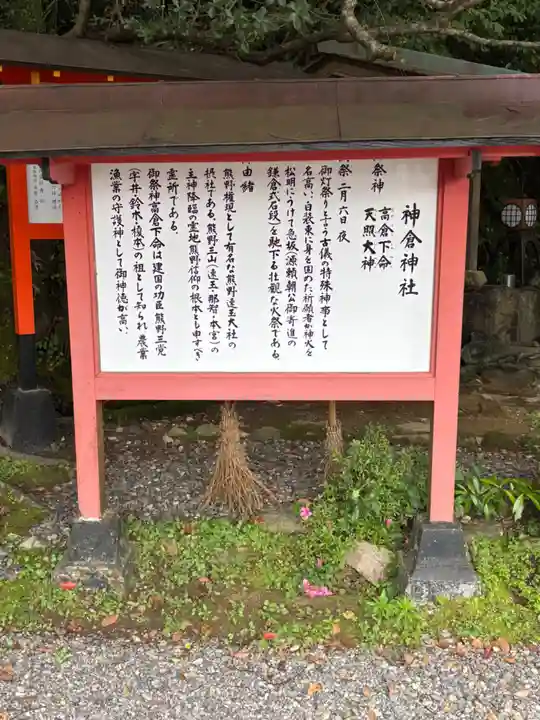 神倉神社
祭神 高倉下命
天照大神
祭 二月六日夜
御灯祭り并う古儀の特殊神事として
名高い、白装束に身を固めた祈願者が神火を
松明にうけて急坂源頼朝公御寄進の
鎌倉式石段を馳下る壮観な火祭である。
由緒
熊野権現として有名な熊野速玉大社の
摂社である。熊野三山(速玉・那智・本宮)の
主神降臨の霊地熊野信仰の根本とも申すべき
霊所である。
御祭神高倉下命は建国の功臣熊野三党
(宇井・鈴木・榎本)の祖として知られ農業
漁業の守護神として御神徳が高い。